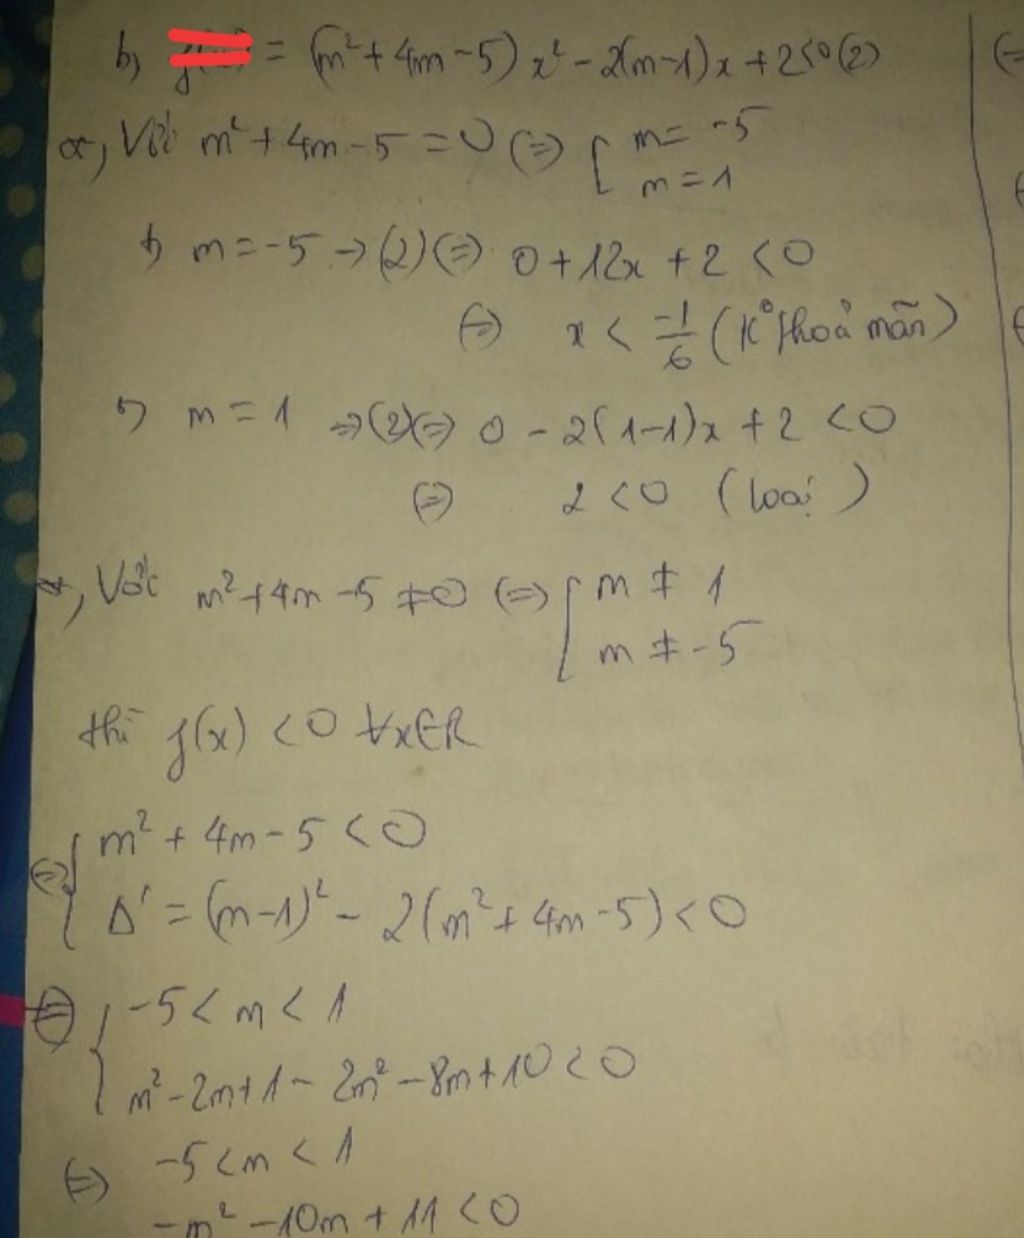 b, = (m² + 4m - 5) x² - 2(m-1) x + 2 < 0 (2)
*, Với m² + 4m - 5 = 0 (=) [ m = -5
m = 1
+) m = -5 → (2) (=) 0 + 12x + 2 < 0
(=) x < -1/6 (K° thoả mãn)
+) m = 1 → (2) (=) 0 - 2(1-1)x + 2 < 0
(=) 2 < 0 (loại)
*, Với m² + 4m - 5 ≠ 0 (=) [ m ≠ 1
m ≠ -5
thì f(x) < 0 ∀x∈R
(=) { m² + 4m - 5 < 0
Δ' = (m-1)² - 2(m² + 4m - 5) < 0
(=) { -5 < m < 1
m² - 2m + 1 - 2m² - 8m + 10 < 0
(=) -5 < m < 1
-m² - 10m + 11 < 0